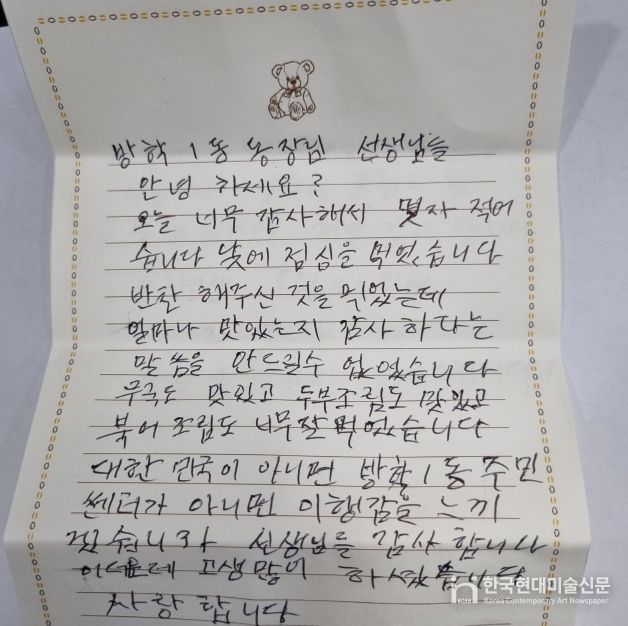 방학 1동 동장님 선생님들
안녕 하세요?
오늘 너무 감사해서 몇자 적어
습니다 낮에 점심을 먹었습니다
반찬 해주신 것을 먹었는데
얼마나 맛있는지 감사 하다는
말씀을 안드릴수 없었습니다
무국도 맛있고 두부조림도 맛있고
북어 조림도 너무잘 먹었습니다
대한 민국이 아니면 방학1동 주민
쎈터가 아니면 이행감을 느끼
선생님들 감사 합니다
고생많이 하셨습니다
사랑 합니다
한국현대미술신문
Korea Contemporary Art Newspaper